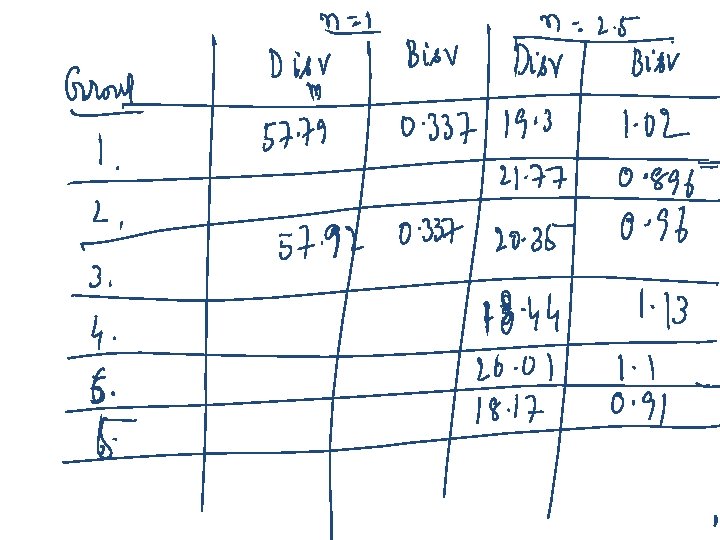 n=1 n=2.5
Group Disv Bisv Disv Bisv
m
1. 57.79 0.337 19.3 1.02
21.77 0.896
2. 57.92 0.337 20.35 0.96
3.
4. 18.44 1.13
5. 20.01 1.1
6. 18.17 0.91